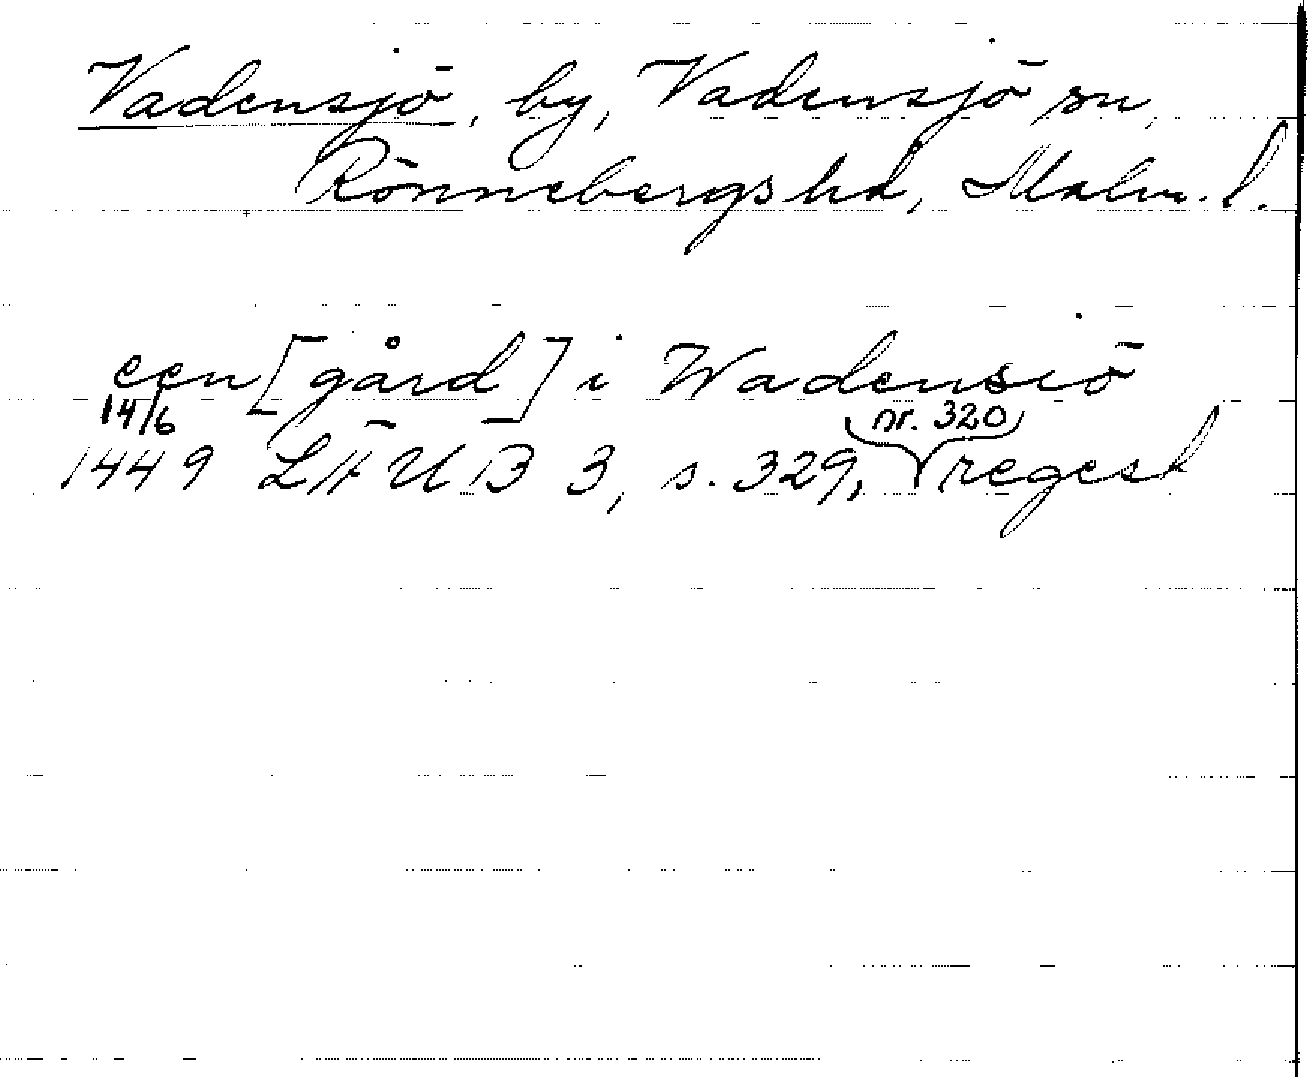 Vadensjö, by, Vadensjö sn,
Rönnebergs hd, Malm. l.
een [gård] i Wadensiö
14/6 nr. 320
1449 LÄUB 3, s. 329, regest